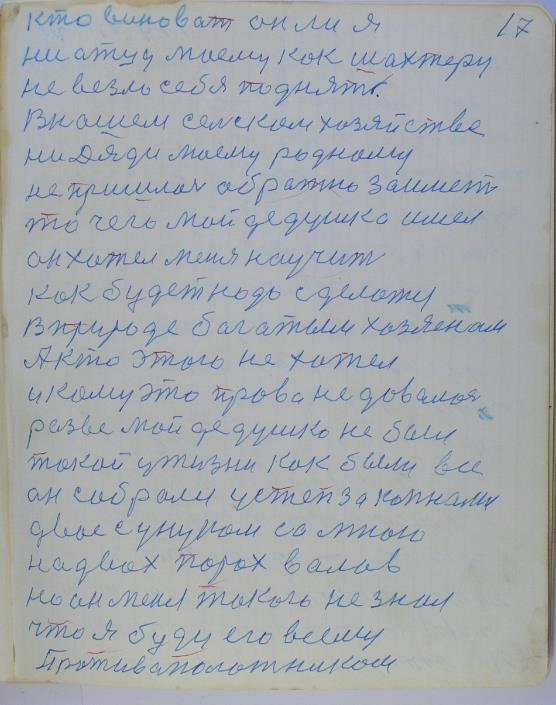 17
кто виноват он ли я
ни атцу моему как шахтеру
не везло себя поднять.
В нашем селском хозяйстве
ни Дяди моему родному
не пришлоя обратно заимет
то чего мой дедушка имел
он хотел меня научит
как будет надо сделаты
в природе багатым хозяенам
А кто этого не хотел
и кому это права не довалоя
разве мой дедушка не был
такой у жизни как были все
ан собрали у степ за копнами
двое с унуком со мною
на двох порох валов
но он меня такого не знал
что я буду его всему
Противаполотником